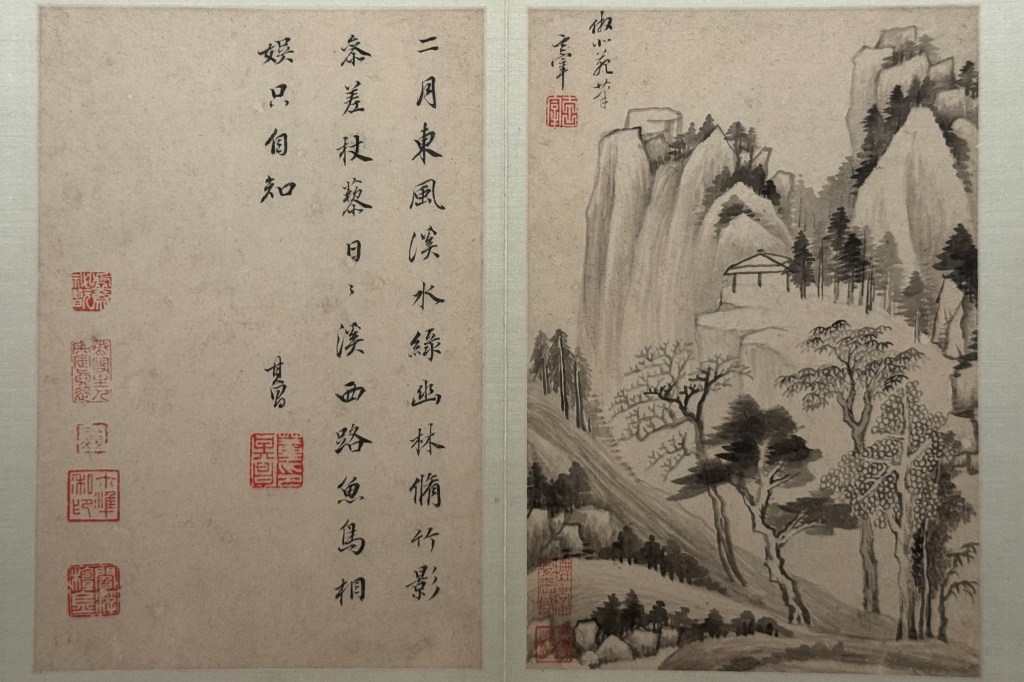 倣北苑筆
玄宰
二月東風溪水綠幽林脩竹影
參差杖藜日〻溪西路魚鳥相
娛只自知
其昌